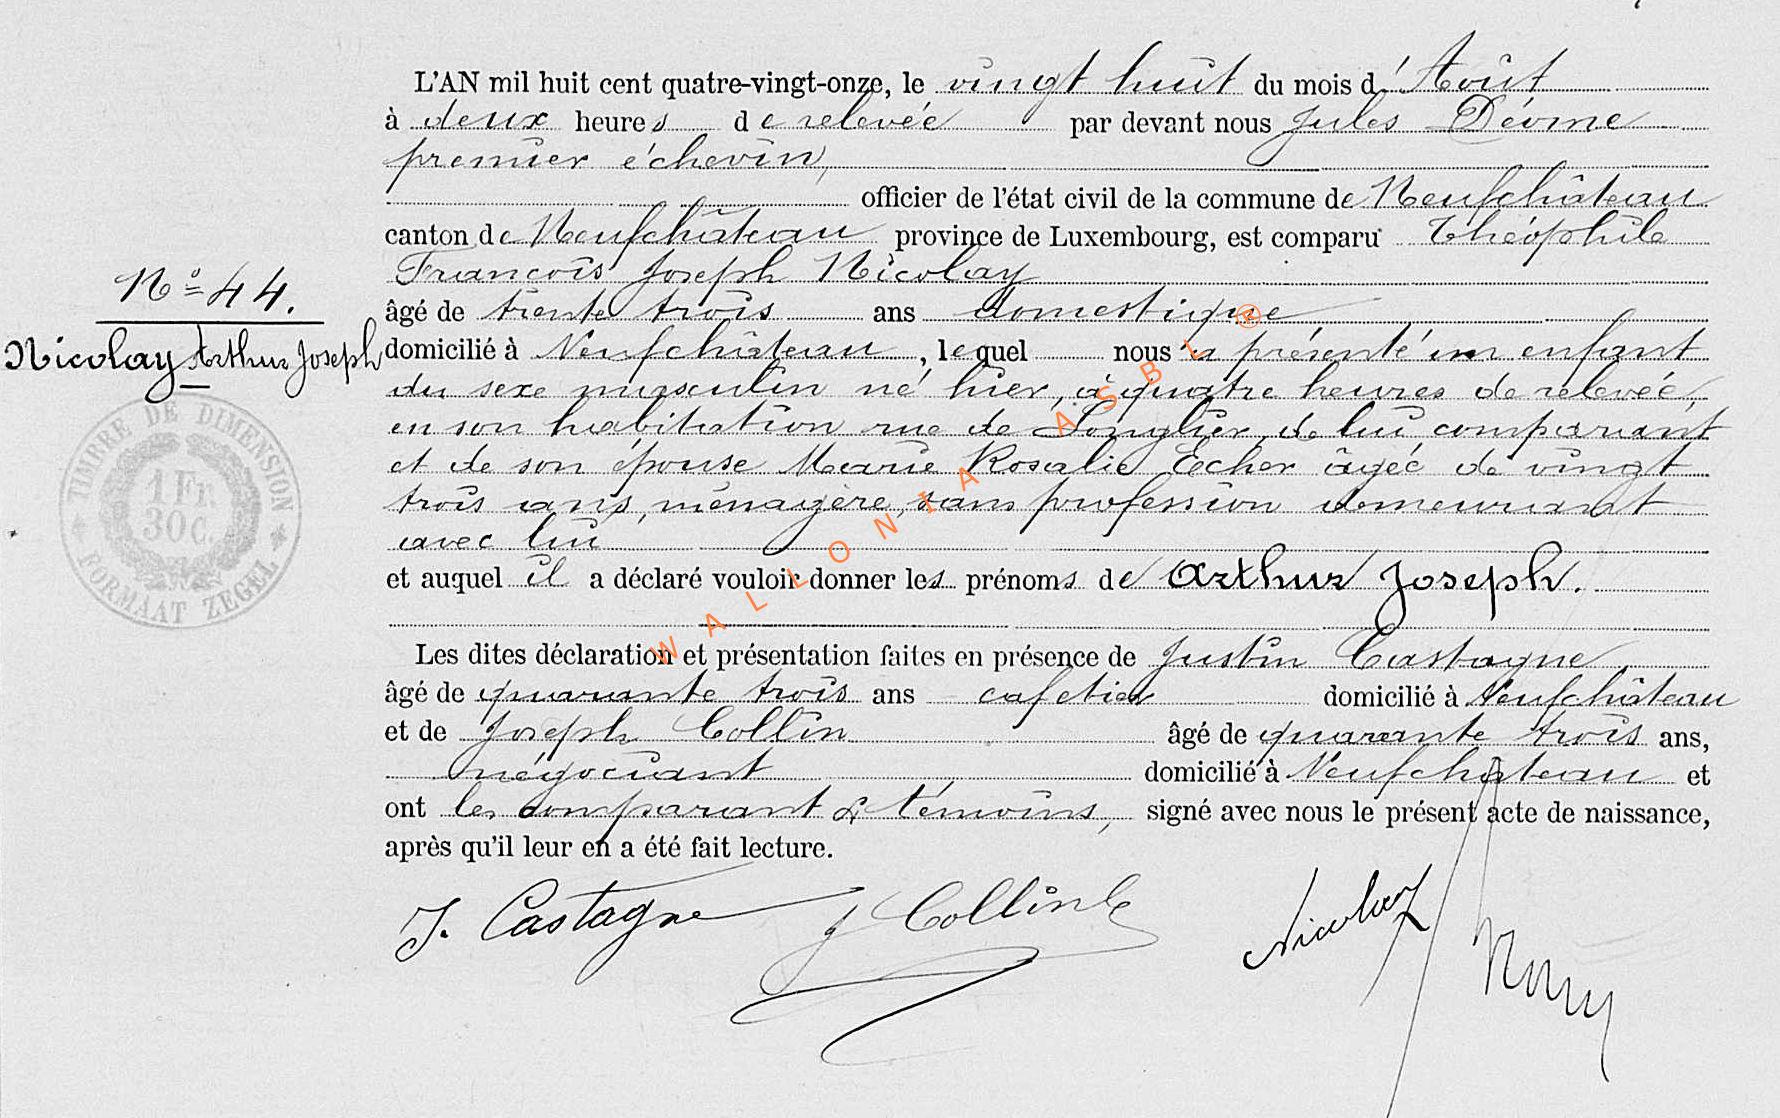 L'AN mil huit cent quatre-vingt-onze, le vingt huit du mois d'Août
à deux heures de relevée par devant nous Jules
premier échevin,
officier de l'état civil de la commune de Neufchâteau
canton de Neufchâteau province de Luxembourg, est comparu Théophile
François Joseph Nicolay
Nº 44.
âgé de trente trois ans domestique
Nicolay Arthur Joseph
domicilié à Neufchâteau, lequel nous a présenté un enfant
du sexe masculin né hier, à quatre heures de relevée,
en son habitation rue de Longlier, de lui comparant
et de son épouse Marie Rosalie Echer âgée de vingt
trois ans, ménagère, sans profession demeurant
avec lui
et auquel il a déclaré vouloir donner les prénoms de Arthur Joseph.
Les dites déclaration et présentation faites en présence de Justin Castagne,
âgé de quarante trois ans cafetier domicilié à Neufchâteau
et de Joseph Collin âgé de quarante trois ans,
négociant domicilié à Neufchâteau et
ont les comparant & témoins, signé avec nous le présent acte de naissance,
après qu'il leur en a été fait lecture.
J. Castagne J Collin Nicolay
TIMBRE DE DIMENSION
1 Fr.
30 C.
FORMAAT ZEGEL
WALLONIA ASBL ®